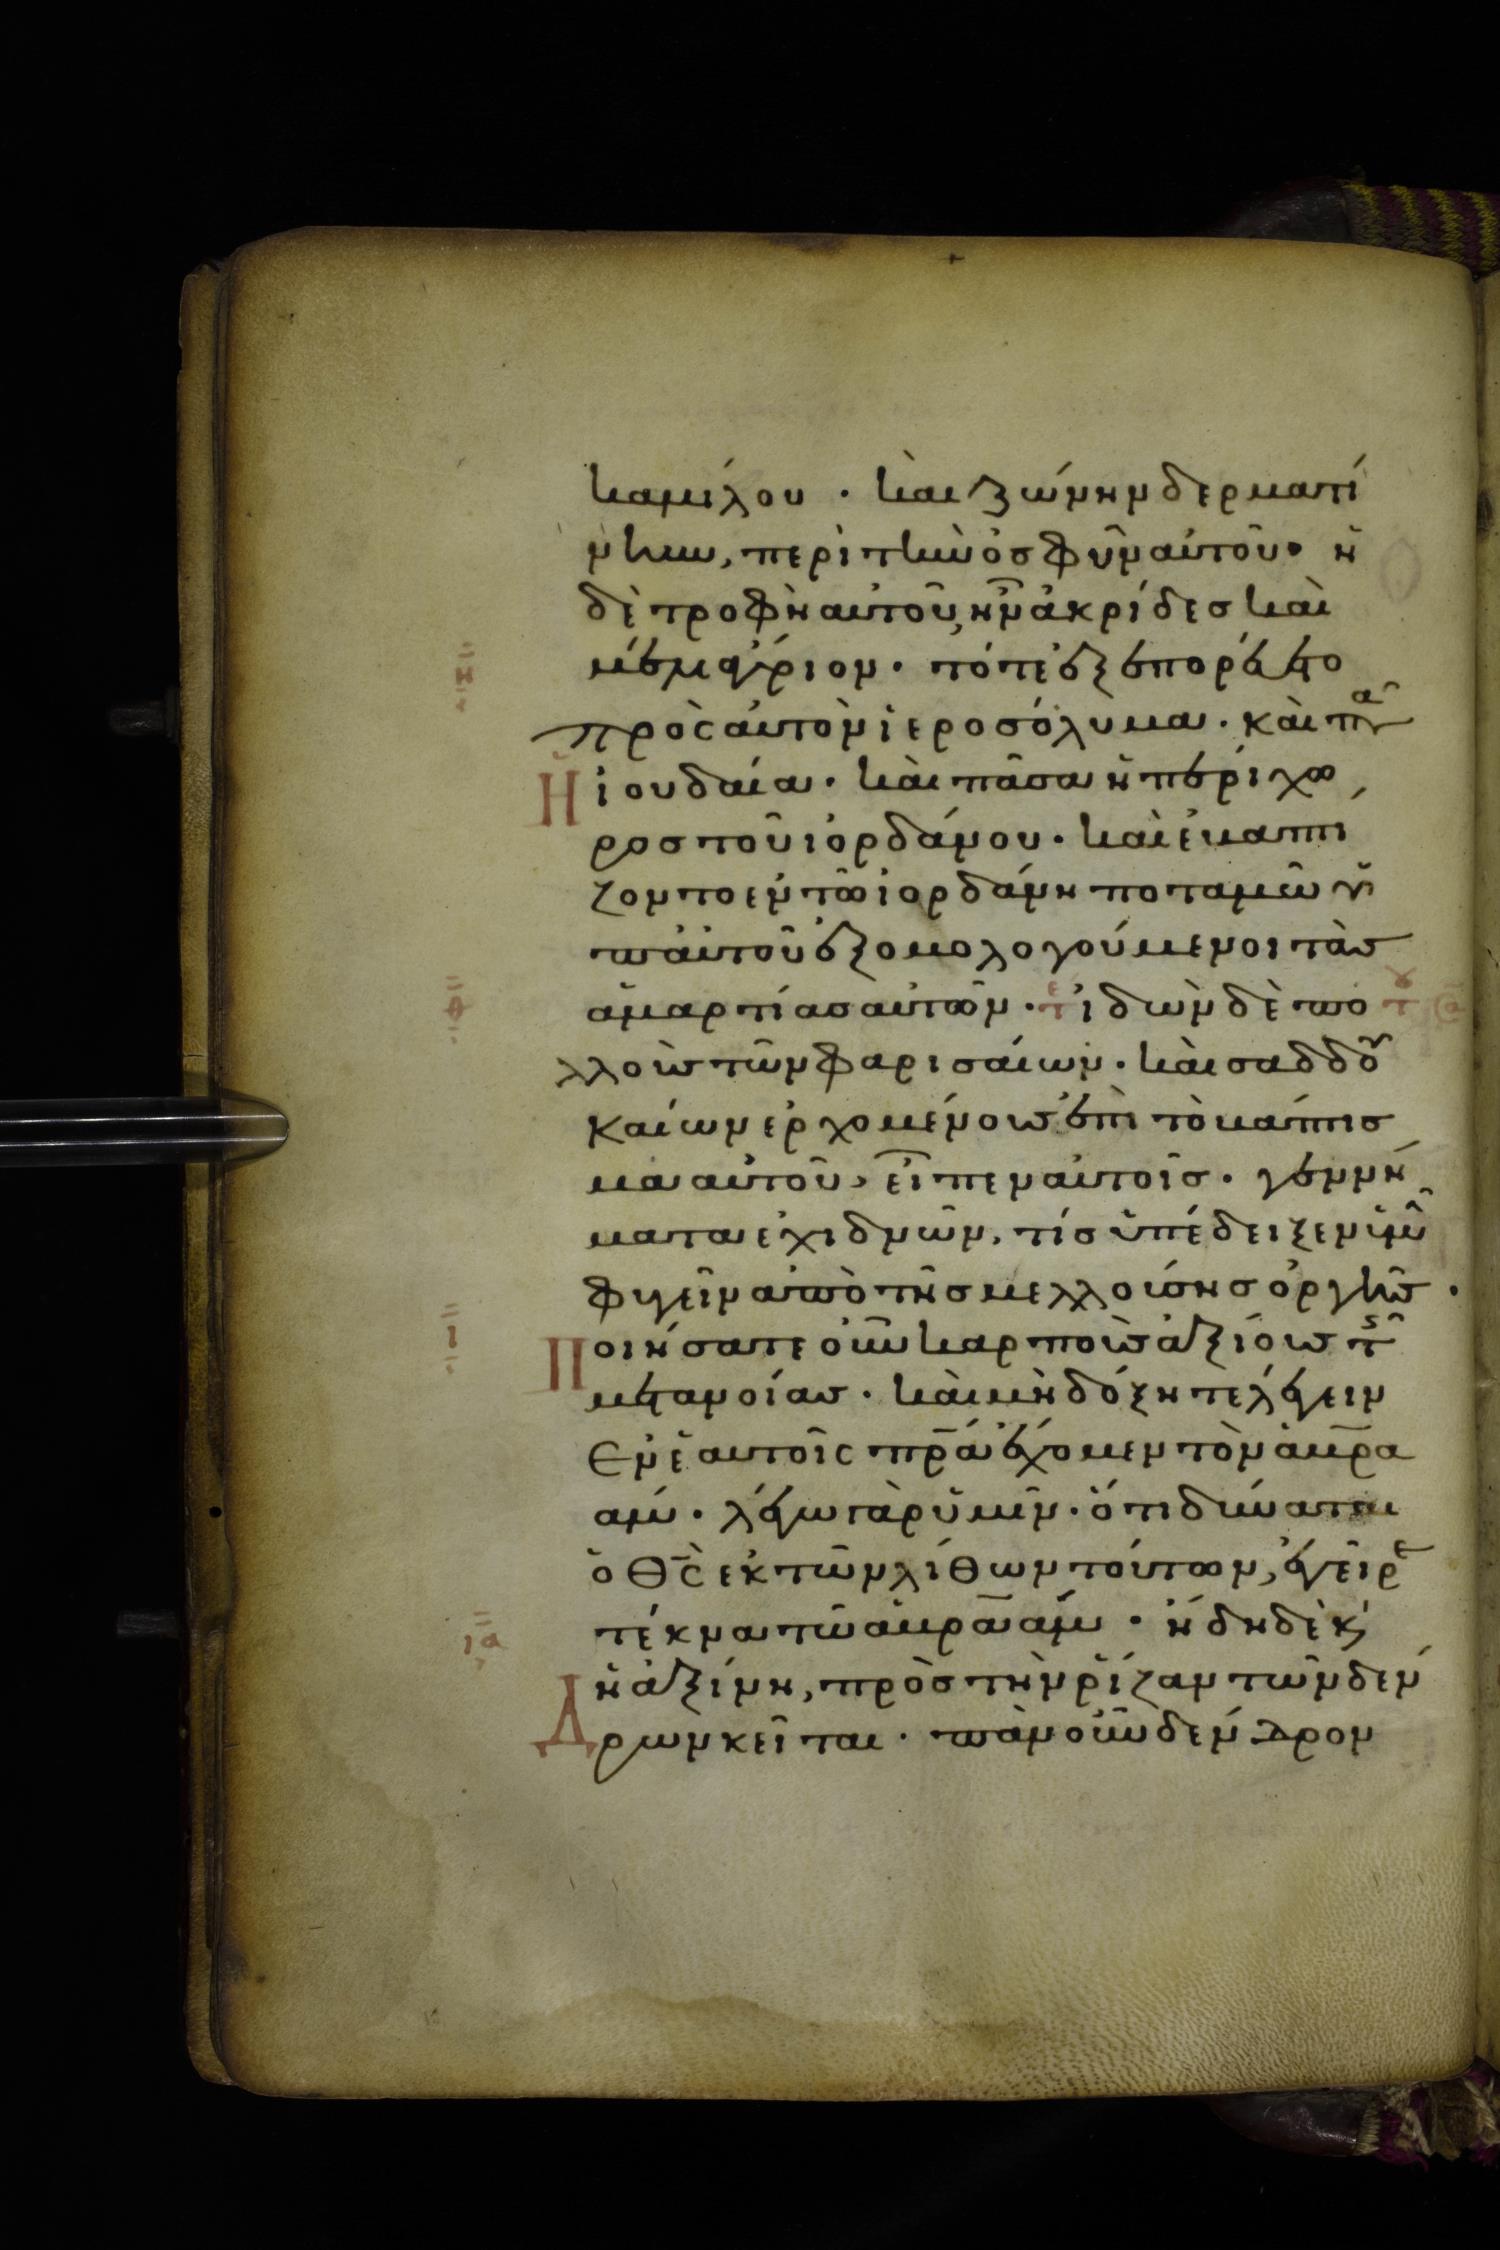 καμίλου · καὶ ζώνην δερματί
νην, περὶ τὴν ὀσφῦν αὐτοῦ · ἡ
δὲ τροφὴ αὐτοῦ, ἦν ἀκρίδες καὶ
η μέλι ἄγριον · τότε ἐξεπορεύετο
πρὸς αὐτὸν ἱεροσόλυμα · καὶ πᾶσα
Ἡ ἰουδαία · καὶ πᾶσα ἡ περίχω
ρος τοῦ ἰορδάνου · καὶ ἐβαπτι
ζοντο ἐν τῶ ἰορδάνη ποταμῶ ὑ
π αὐτοῦ ἐξομολογούμενοι τὰς
θ ἁμαρτίας αὐτῶν · τε ἰδὼν δὲ πο
λλοὺς τῶν φαρισαίων · καὶ σαδδου
καίων ἐρχομένους ἐπὶ τὸ βάπτισ
μα αὐτοῦ, εἶπεν αὐτοῖς · γεννή
ματα ἐχιδνῶν, τίς ὑπέδειξεν ὑμῖν
φυγεῖν ἀπὸ τῆς μελλούσης ὀργῆς ·
ι Ποιήσατε οὖν καρποὺς ἀξίους τῆς
μετανοίας · καὶ μὴ δόξητε λέγειν
ἐν ἑαυτοῖς πρα ἔχομεν τὸν ἀβρα
άμ · λέγω γὰρ ὑμῖν · ὅτι δύναται
ὁ θς ἐκ τῶν λίθων τούτων, ἐγεῖραι
ια τέκνα τῶ ἀβραάμ · ἤδη δὲ κ
ἡ ἀξίνη, πρὸς τὴν ῥίζαν τῶν δέν
Δρων κεῖται · πὰν οὖν δένδρον